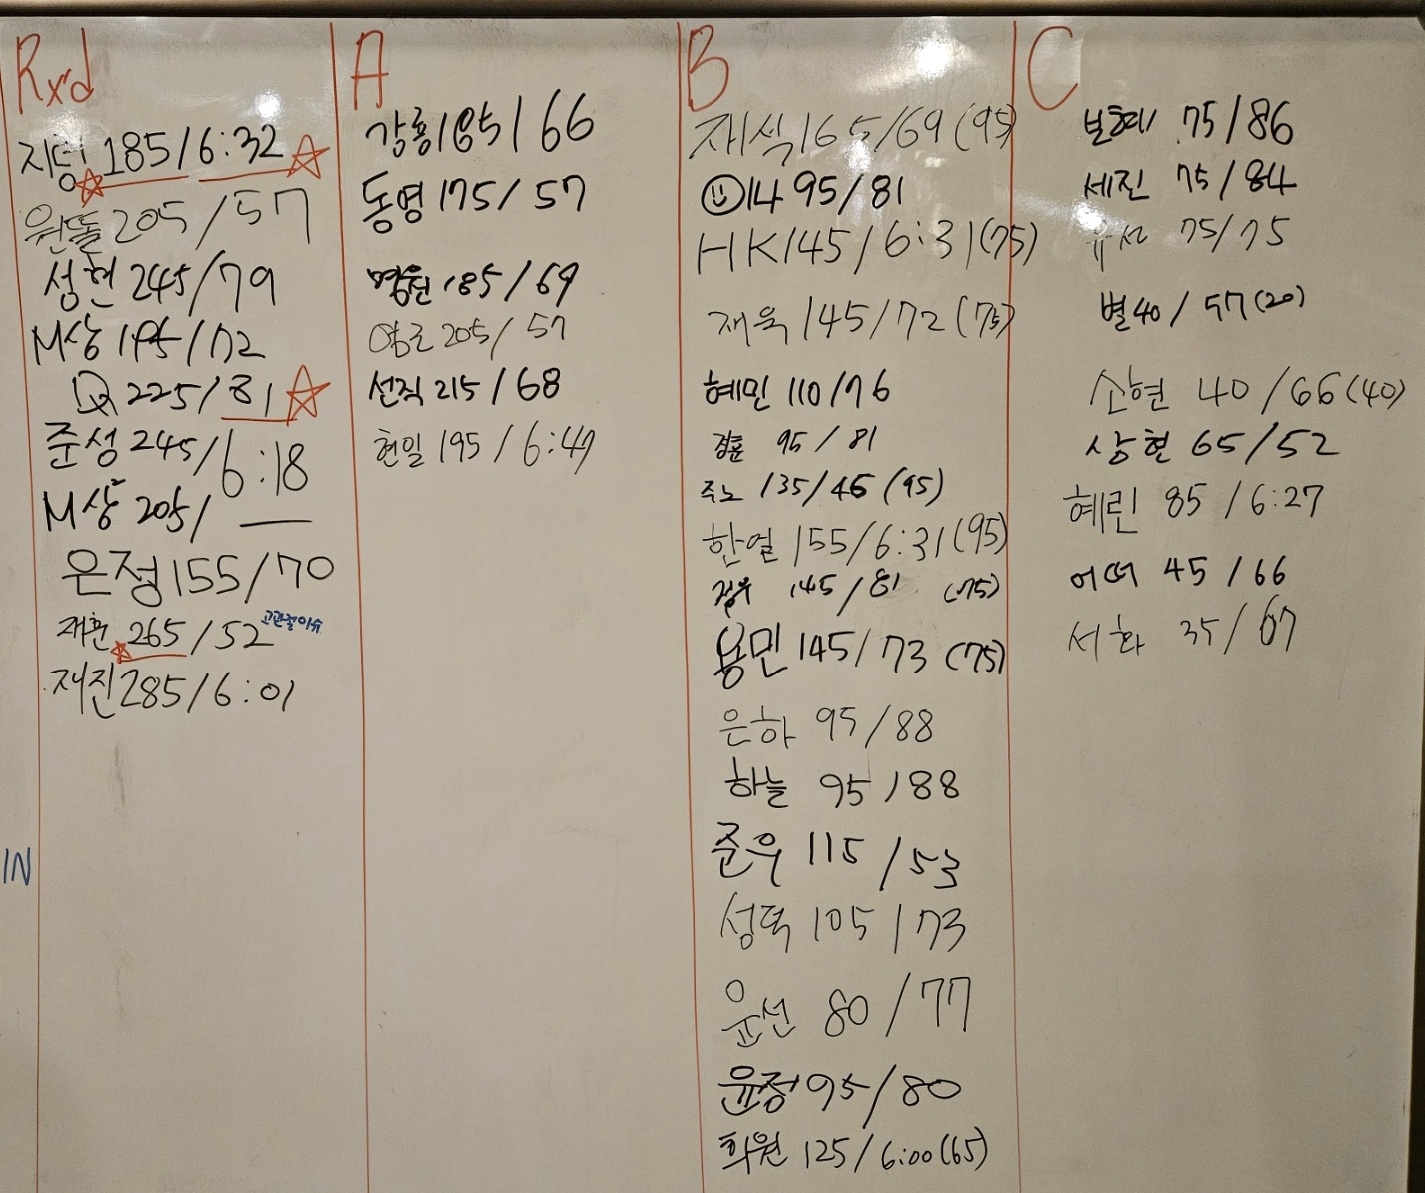 Rx'd
지덩 185/6:32
원돌 205/57
성현 245/79
M상 195/72
Q 225/81
준성 245/6:18
M상 205/
은정 155/70
재환 265/52 고관절이슈
재진 285/6:01
IN
A
강룡 185/66
동영 175/57
명원 185/69
205/57
선직 215/68
현일 195/6:49
B
재석 165/69 (95)
14 95/81
HK 145/6:31 (75)
재욱 145/72 (75)
혜민 110/76
경훈 95/81
주노 135/46 (95)
한열 155/6:31 (95)
정우 145/81 (75)
용민 145/73 (75)
은하 95/88
하늘 95/88
준우 115/53
성덕 105/73
윤선 80/77
윤정 95/80
화원 125/6:00 (65)
C
보혜 75/86
세진 75/84
75/75
별 40/57 (20)
소현 40/66 (40)
상현 65/52
혜린 85/6:27
45/66
서화 35/67